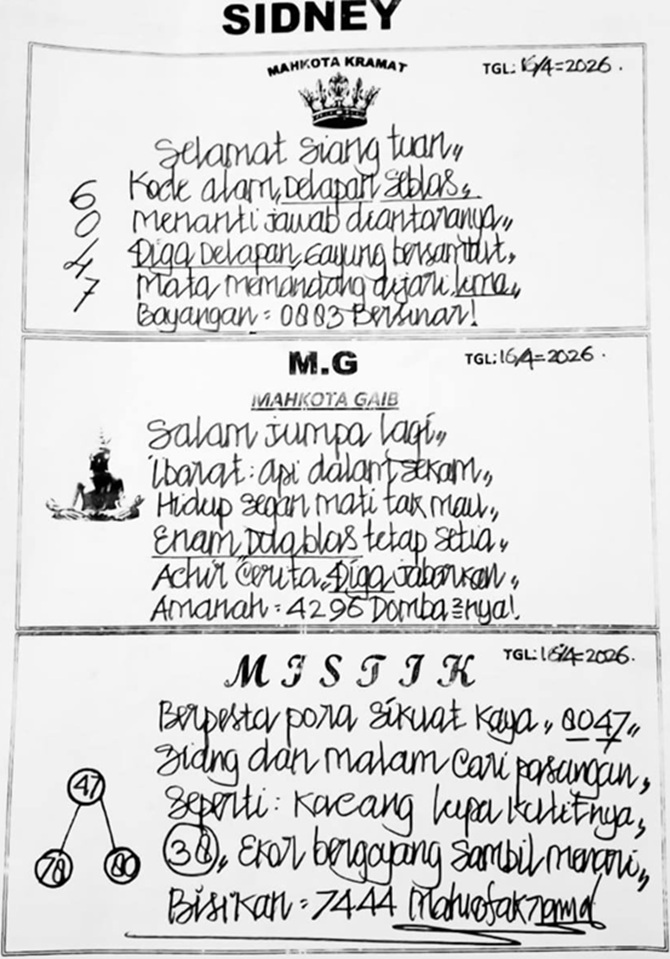 SIDNEY
MAHKOTA KRAMAT
TGL: 16/4=2026.
Selamat siang tuan,,
6 Kode alam, Delapan Seblas,,
0 Menanti jawab diantaranya,,
4 Diga Delapan, Gayung bersambut,
7 Mata memandang dijari lima,,
Bayangan = 0883 Bersinar!
M.G
TGL: 16/4=2026.
MAHKOTA GAIB
Salam jumpa lagi,,
Ibarat: api dalam sekam,,
Hidup segan mati tak mau,,
Enam, blas tetap setia,,
Achir Cerita, Diga jabarkan,,
Amanah = 4296 Domba nya!
MISTIK
TGL: 16/4=2026.
Berpesta pora sikuat kaya,, 8047,,
Siang dan malam cari pasangan,
47
Seperti: Kacang lupa kulitnya,
78 80 38,, Ekor bergoyang sambil menari,,
Bisikan = 7444